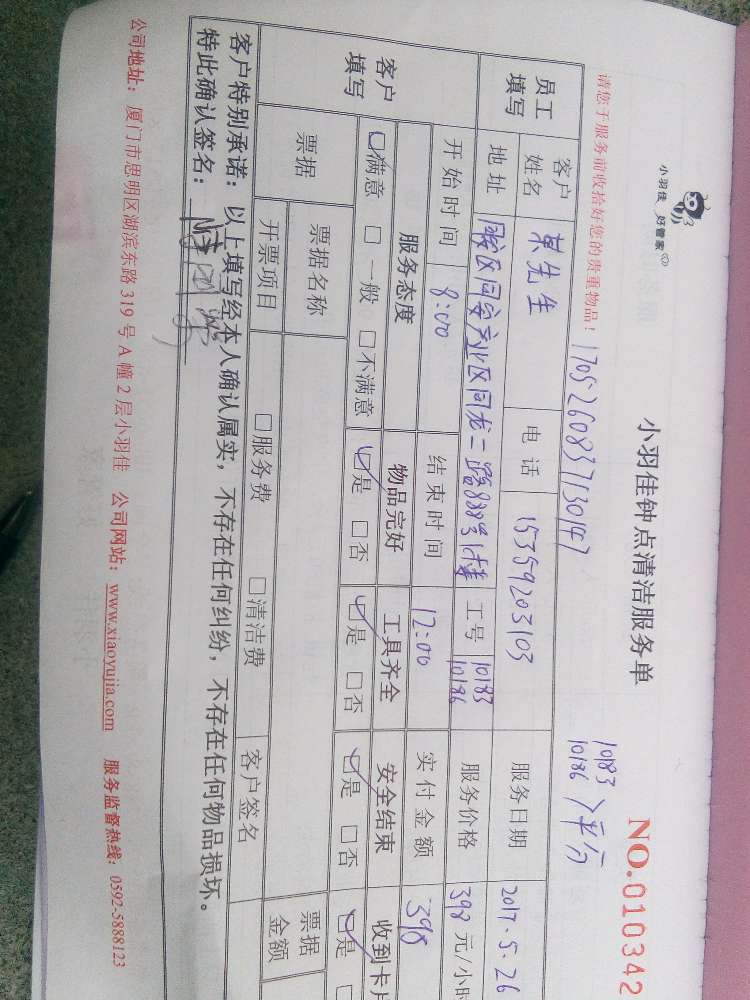 小羽佳 好管家
小羽佳钟点清洁服务单
NO.010342
请您于服务前收拾好您的贵重物品！
1705260837130147
10183
10186 平分
员工填写
客户姓名 某先生 电话 15359203103 服务日期 2017.5.26
地址 同安区同安工业区同龙二路888号1楼 工号 10183 10186 服务价格 398 元/小时
客户填写
开始时间 8:00 结束时间 12:00 实付金额 398
服务态度 物品完好 工具齐全 安全结束 收到卡片
□满意 □一般 □不满意 □是 □否 □是 □否 □是 □否 □是
票据 票据名称 票据金额
开票项目 □服务费 □清洁费 客户签名
客户特别承诺：以上填写经本人确认属实，不存在任何纠纷，不存在任何物品损坏。
特此确认签名：
公司地址：厦门市思明区湖滨东路 319 号 A 幢 2 层小羽佳 公司网站：www.xiaoyujia.com 服务监督热线：0592-5888123